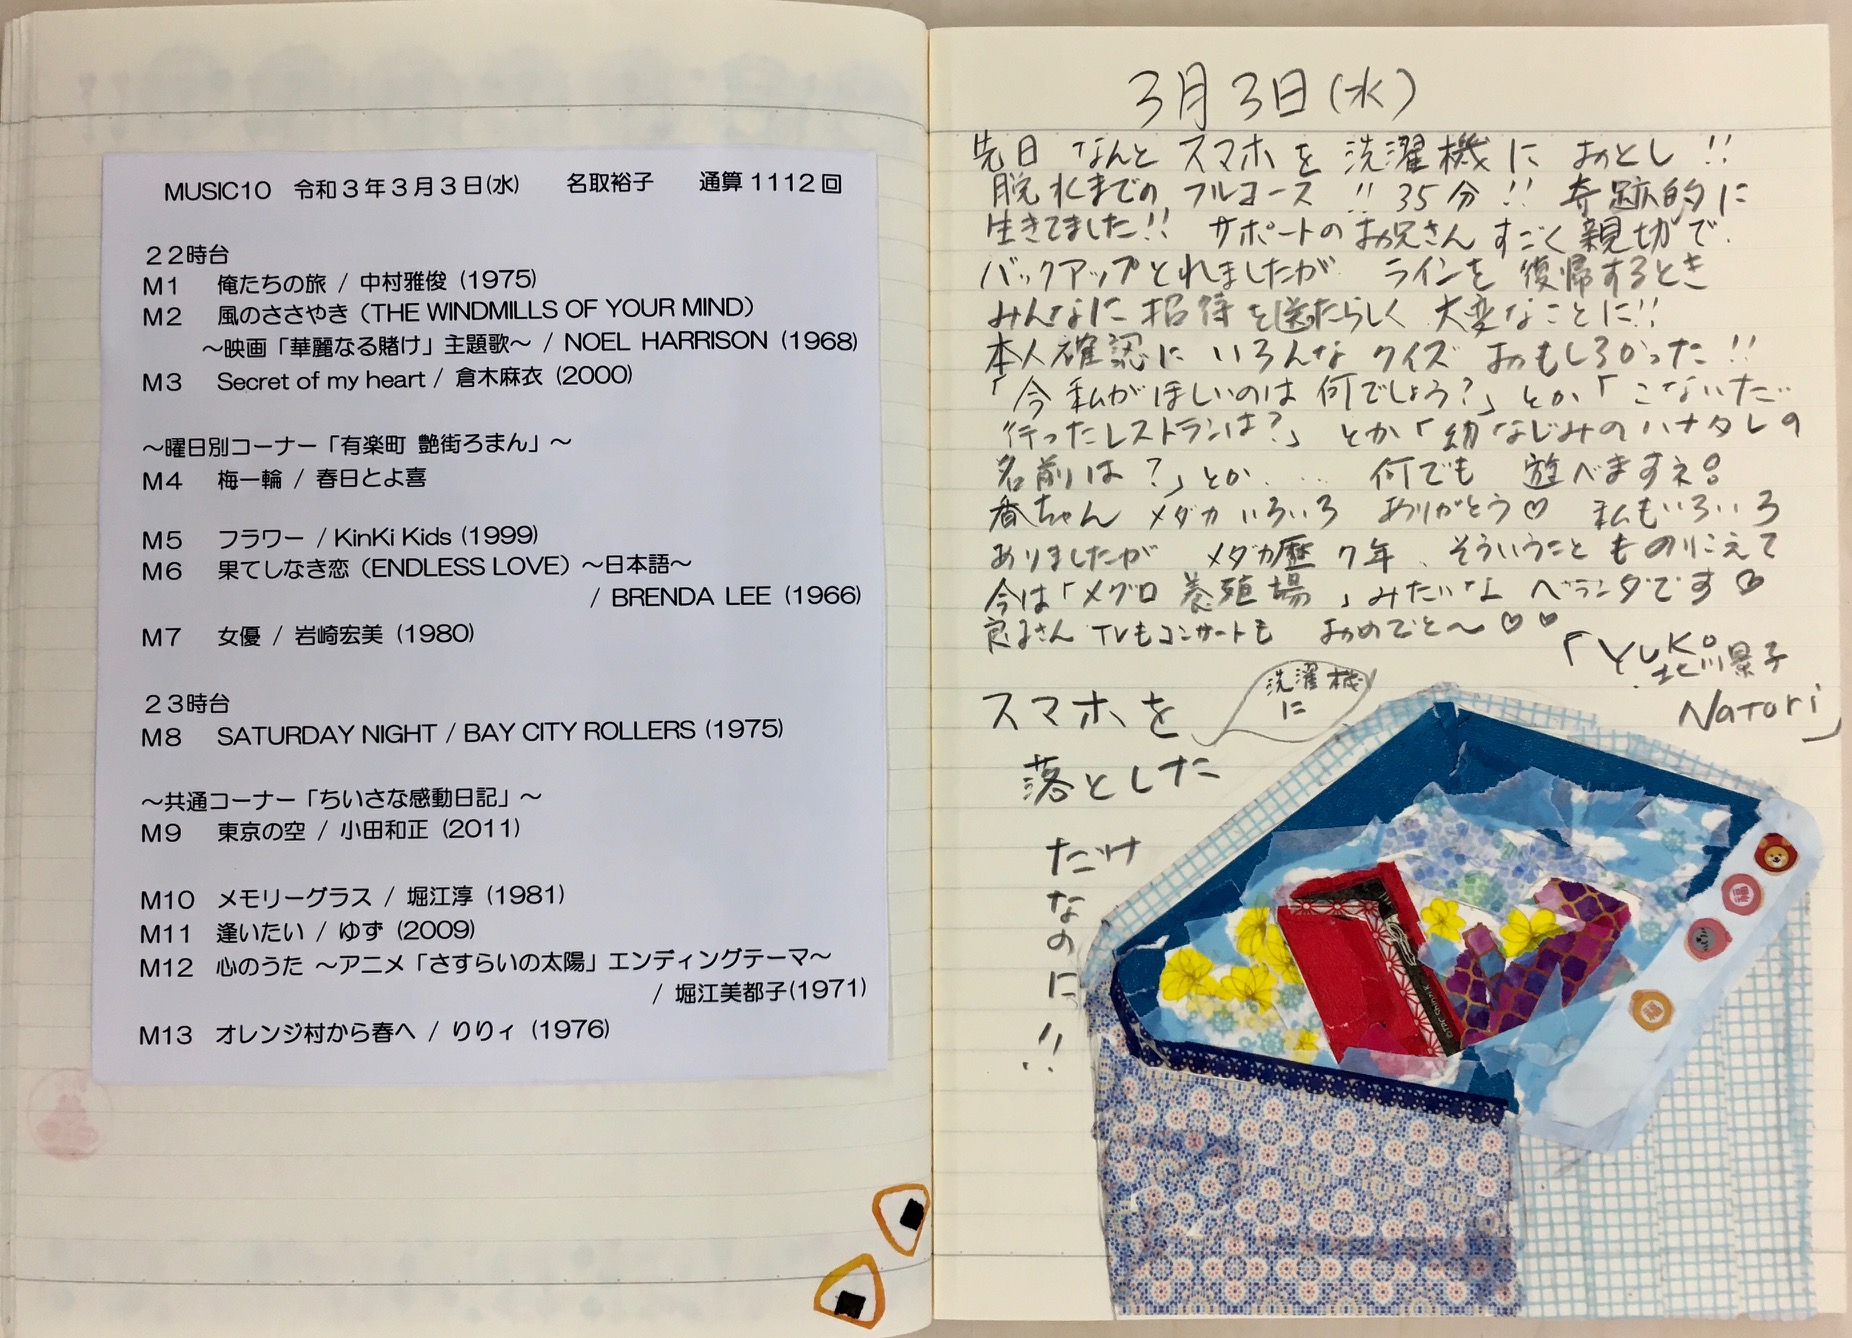 MUSIC10 令和3年3月3日(水) 名取裕子 通算1112回
22時台
M1 俺たちの旅 / 中村雅俊 (1975)
M2 風のささやき (THE WINDMILLS OF YOUR MIND)
〜映画「華麗なる賭け」主題歌〜 / NOEL HARRISON (1968)
M3 Secret of my heart / 倉木麻衣 (2000)
〜曜日別コーナー「有楽町 艶街ろまん」〜
M4 梅一輪 / 春日とよ喜
M5 フラワー / KinKi Kids (1999)
M6 果てしなき恋 (ENDLESS LOVE) 〜日本語〜
/ BRENDA LEE (1966)
M7 女優 / 岩崎宏美 (1980)
23時台
M8 SATURDAY NIGHT / BAY CITY ROLLERS (1975)
〜共通コーナー「ちいさな感動日記」〜
M9 東京の空 / 小田和正 (2011)
M10 メモリーグラス / 堀江淳 (1981)
M11 逢いたい / ゆず (2009)
M12 心のうた 〜アニメ「さすらいの太陽」エンディングテーマ〜
/ 堀江美都子(1971)
M13 オレンジ村から春へ / りりィ (1976)
3月3日(水)
先日 なんと スマホを 洗濯機に おとし!!
脱水までの フルコース!! 35分!! 奇跡的に
生きてました!! サポートのお兄さん すごく親切で.
バックアップとれましたが ラインを 復帰するとき
みんなに 招待を送たらしく 大変なことに!!
本人確認に いろんな クイズ おもしろかった!!
「今 私がほしいのは 何でしょう?」とか「こないだ
行ったレストランは?」とか「幼なじみのハナタレの
名前は?」とか..... 何でも 遊べますネ!
香ちゃん メダカ いろいろ ありがとう♡ 私もいろいろ
ありましたが メダカ歴 7年、そういうこと ものりこえて
今は「メグロ 養殖場」みたいな ベランダです♡
良子さん TVもコンサートも おめでと〜♡♡
「Yuko
北川景子
Natori」
洗濯機
に
スマホを
落とした
だけ
なのに
!!